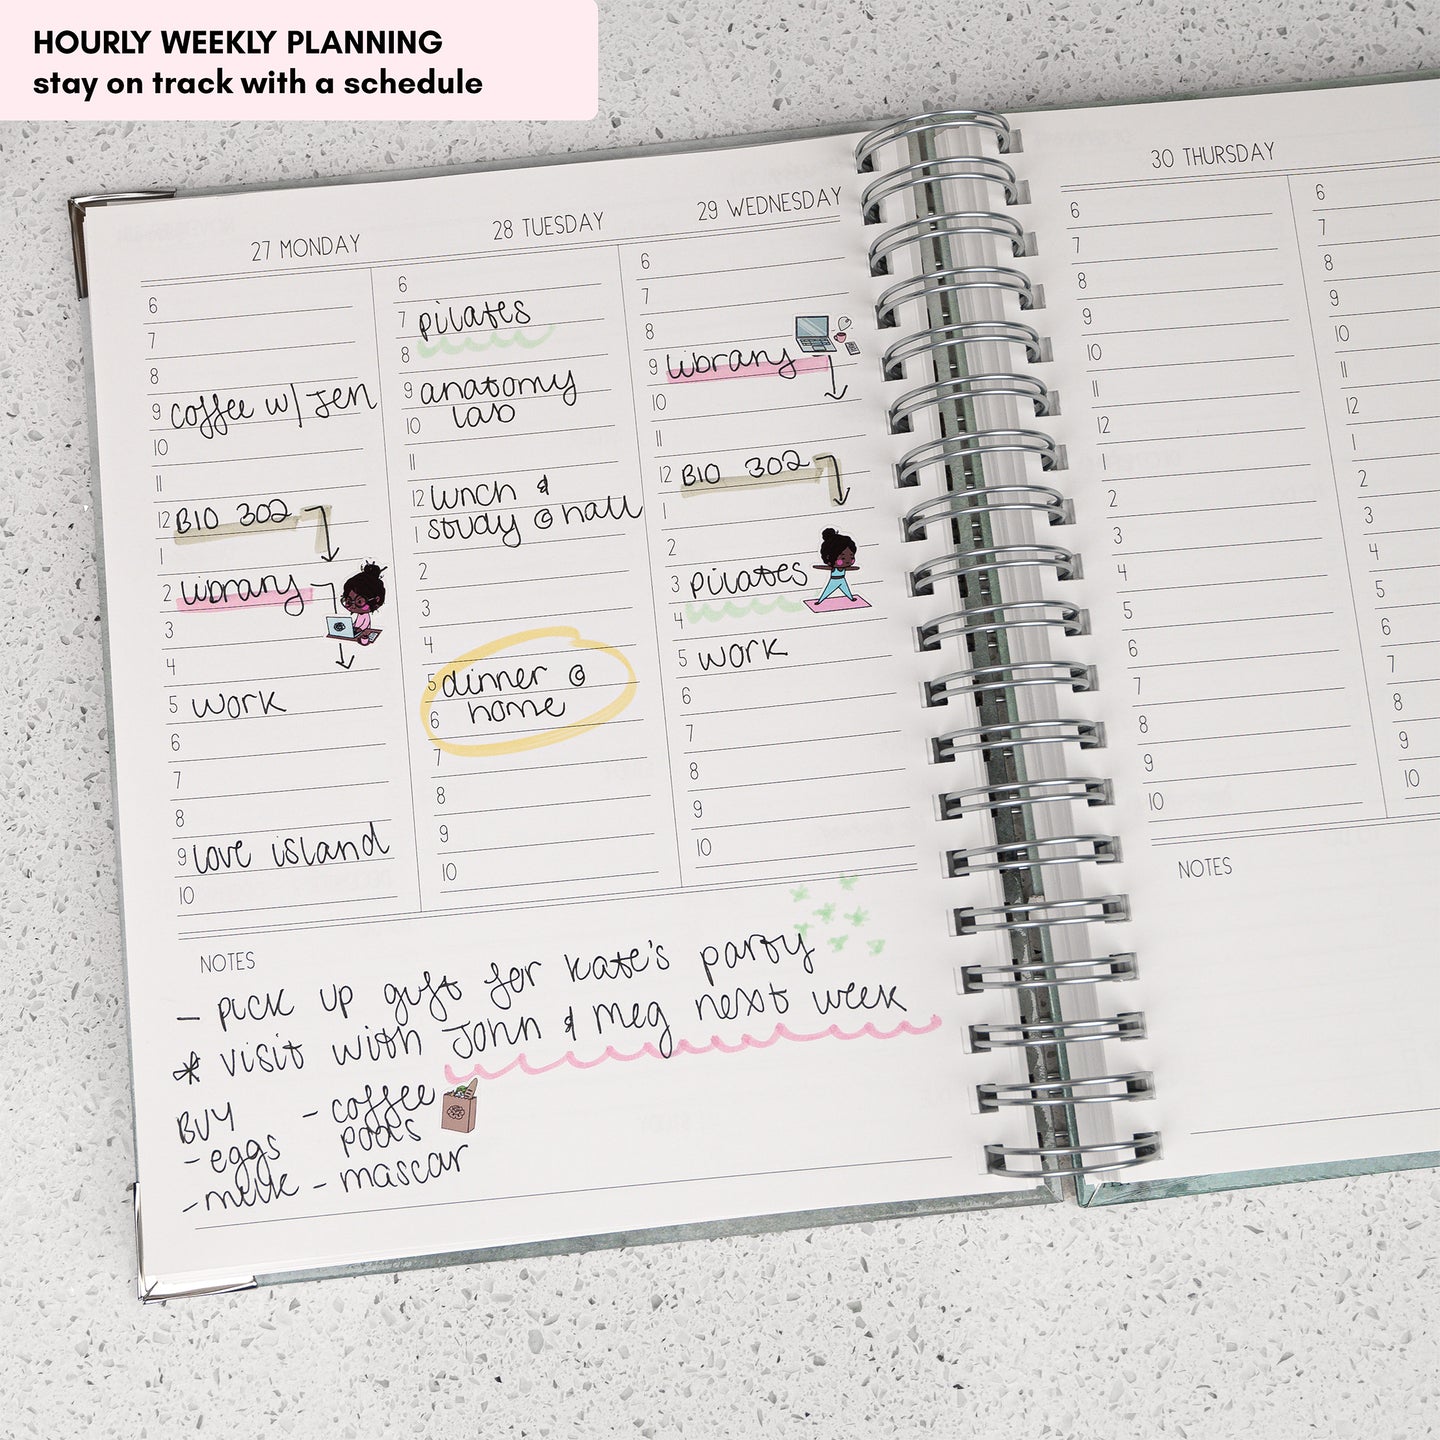 HOURLY WEEKLY PLANNING
stay on track with a schedule
27 MONDAY
6
7
8
9 coffee w/ Jen
10
11
12 BIO 302
1
2 library
3
4
5 work
6
7
8
9 love island
10
28 TUESDAY
6
7 pilates
8
9 anatomy
10 lab
11
12 lunch &
1 study @ hall
2
3
4
5 dinner @
6 home
7
8
9
10
29 WEDNESDAY
6
7
8
9 library
10
11
12 BIO 302
1
2
3 pilates
4
5 work
6
7
8
9
10
NOTES
- pick up gift for kate's party
* visit with John & meg next week
BUY
- eggs
- milk
- coffee
pods
- mascar
30 THURSDAY
6
7
8
9
10
11
12
1
2
3
4
5
6
7
8
9
10
6
7
8
9
10
11
12
1
2
3
4
5
6
7
8
9
10
NOTES